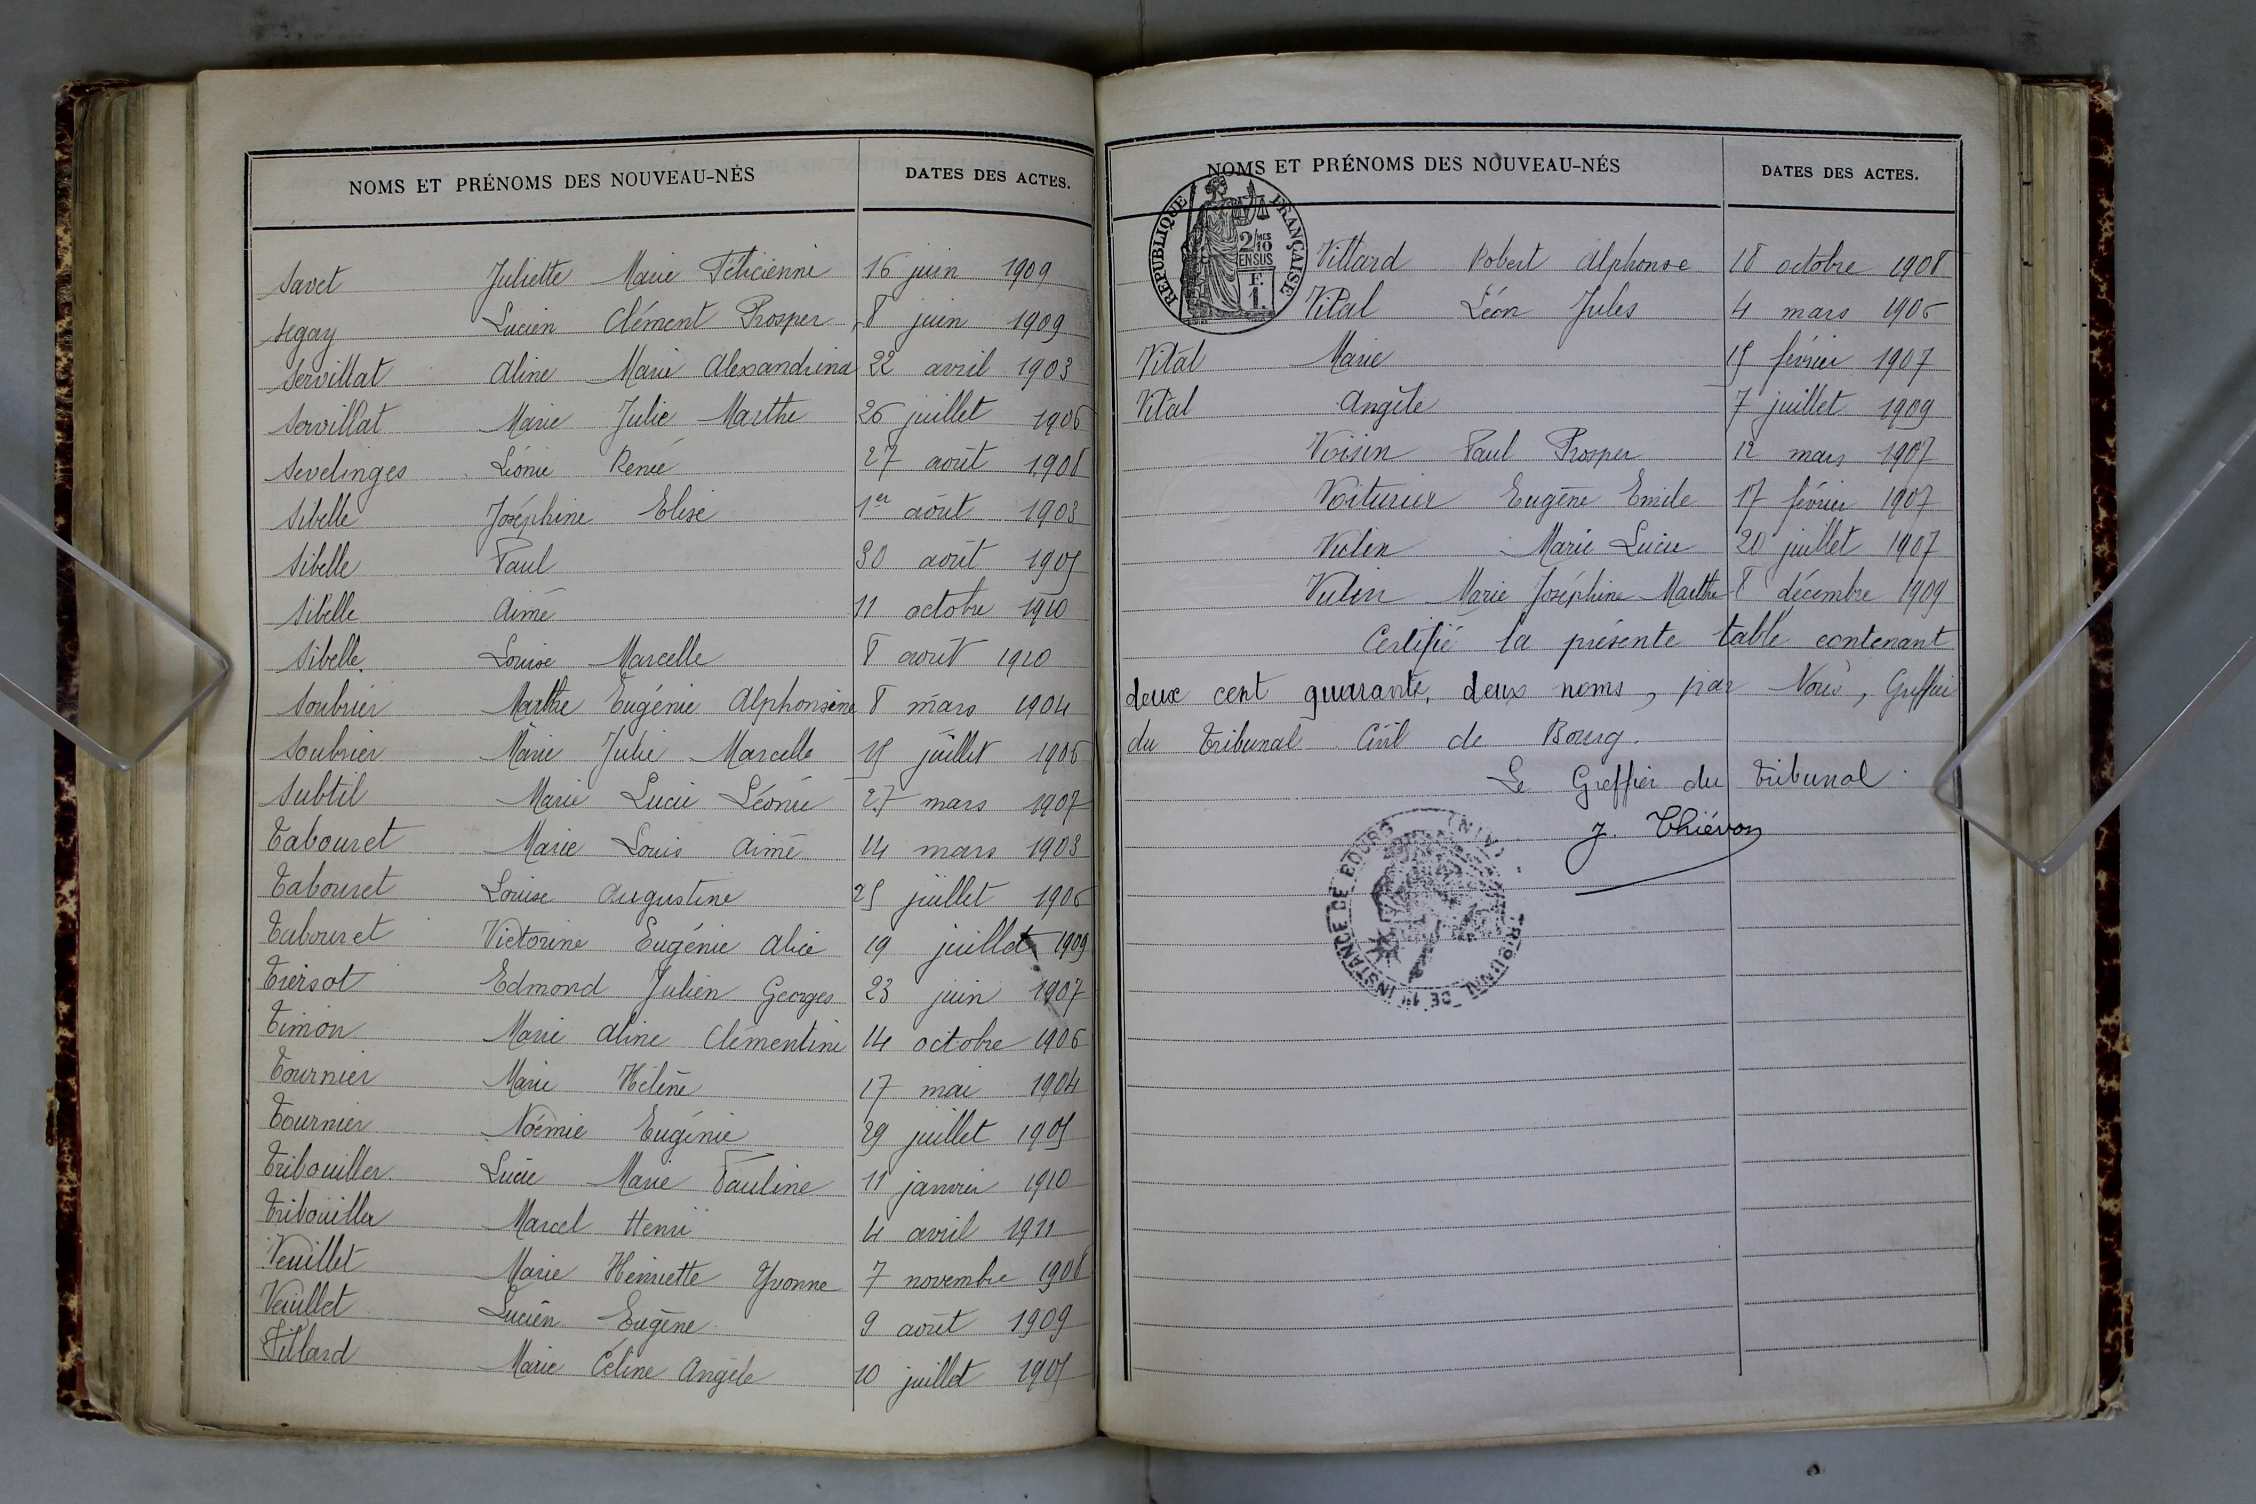 NOMS ET PRÉNOMS DES NOUVEAU-NÉS DATES DES ACTES.
Savet Juliette Marie Félicienne 16 juin 1909
Segay Lucien Clément Prosper 8 juin 1909
Servillat Aline Marie Alexandrina 22 avril 1903
Servillat Marie Julie Marthe 26 juillet 1906
Sevelinges Léonie Renée 27 août 1908
Sibelle Joséphine Elise 1er août 1903
Sibelle Paul 30 août 1905
Sibelle Aimé 11 octobre 1910
Sibelle. Louise Marcelle 8 août 1910
Soubrier Marthe Eugénie Alphonsine 8 mars 1904
Soubrier Marie Julie Marcelle 15 juillet 1906
Subtil Marie Lucie Léonie 27 mars 1907
Tabouret Marie Louis Aimé 14 mars 1903
Tabouret Louise Augustine 25 juillet 1906
Tabouret Victorine Eugénie Alice 19 juillet 1909
Tiersot Edmond Julien Georges 23 juin 1907
Timon Marie Aline Clémentine 14 octobre 1906
Tournier Marie Hélène 17 mai 1904
Tournier Noémie Eugénie 29 juillet 1905
Tribouiller Lucie Marie Pauline 11 janvier 1910
Tribouiller Marcel Henri 4 avril 1911
Veuillet Marie Henriette Yvonne 7 novembre 1908
Veuillet Lucien Eugène 9 août 1909
Villard Marie Céline Angèle 10 juillet 1905
NOMS ET PRÉNOMS DES NOUVEAU-NÉS DATES DES ACTES.
RÉPUBLIQUE FRANÇAISE
2/10MES
EN SUS
F.
1.
Villard Robert Alphonse 18 octobre 1908
Vital Léon Jules 4 mars 1906
Vital Marie 15 février 1907
Vital Angèle 7 juillet 1909
Voisin Paul Prosper 12 mars 1907
Voiturier Eugène Emile 17 février 1907
Vulin Marie Lucie 20 juillet 1907
Vulin Marie Joséphine Marthe 8 décembre 1909
Certifié la présente table contenant
deux cent quarante, deux noms, par Nous, Greffier
du Tribunal Civil de Bourg.
Le Greffier du Tribunal.
J. Thiévon
TRIBUNAL DE 1re INSTANCE DE BOURG (AIN)